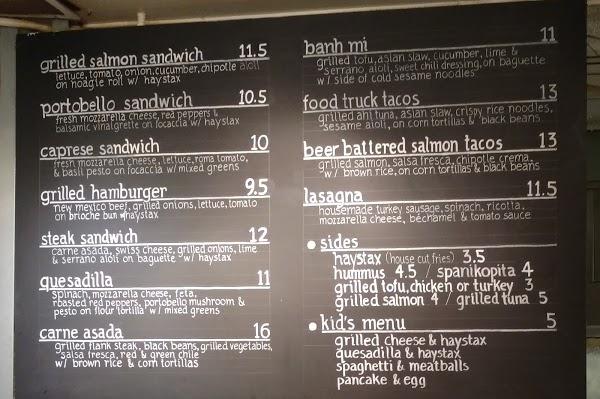 grilled salmon sandwich 11.5
lettuce, tomato, onion, cucumber, chipotle aioli
on hoagie roll w/ haystax
portobello sandwich 10.5
fresh mozzarella cheese, red peppers &
balsamic vinaigrette on focaccia w/ haystax
caprese sandwich 10
fresh mozzarella cheese, lettuce, roma tomato,
& basil pesto on focaccia w/ mixed greens
grilled hamburger 9.5
new mexico beef, grilled onions, lettuce, tomato
on brioche bun w/haystax
steak sandwich 12
carne asada, swiss cheese, grilled onions, lime
& serrano aioli on baguette w/ haystax
quesadilla 11
spinach, mozzarella cheese, feta,
roasted red peppers, portobello mushroom &
pesto on flour tortilla w/ mixed greens
carne asada 16
grilled flank steak, black beans, grilled vegetables,
salsa fresca, red & green chile
w/ brown rice & corn tortillas
banh mi 11
grilled tofu, asian slaw, cucumber, lime &
serrano aioli, sweet chili dressing, on baguette
w/ side of cold sesame noodles
food truck tacos 13
grilled ahi tuna, asian slaw, crispy rice noodles,
sesame aioli, on corn tortillas & black beans
beer battered salmon tacos 13
grilled salmon, salsa fresca, chipotle crema,
w/ brown rice, on corn tortillas & black beans
lasagna 11.5
housemade turkey sausage, spinach, ricotta,
mozzarella cheese, béchamel & tomato sauce
• sides
haystax (house cut fries) 3.5
hummus 4.5 / spanikopita 4
grilled tofu, chicken or turkey 3
grilled salmon 4 / grilled tuna 5
• kid's menu 5
grilled cheese & haystax
quesadilla & haystax
spaghetti & meatballs
pancake & egg